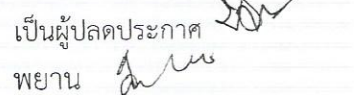 เป็นผู้ปลดประกาศ
พยาน